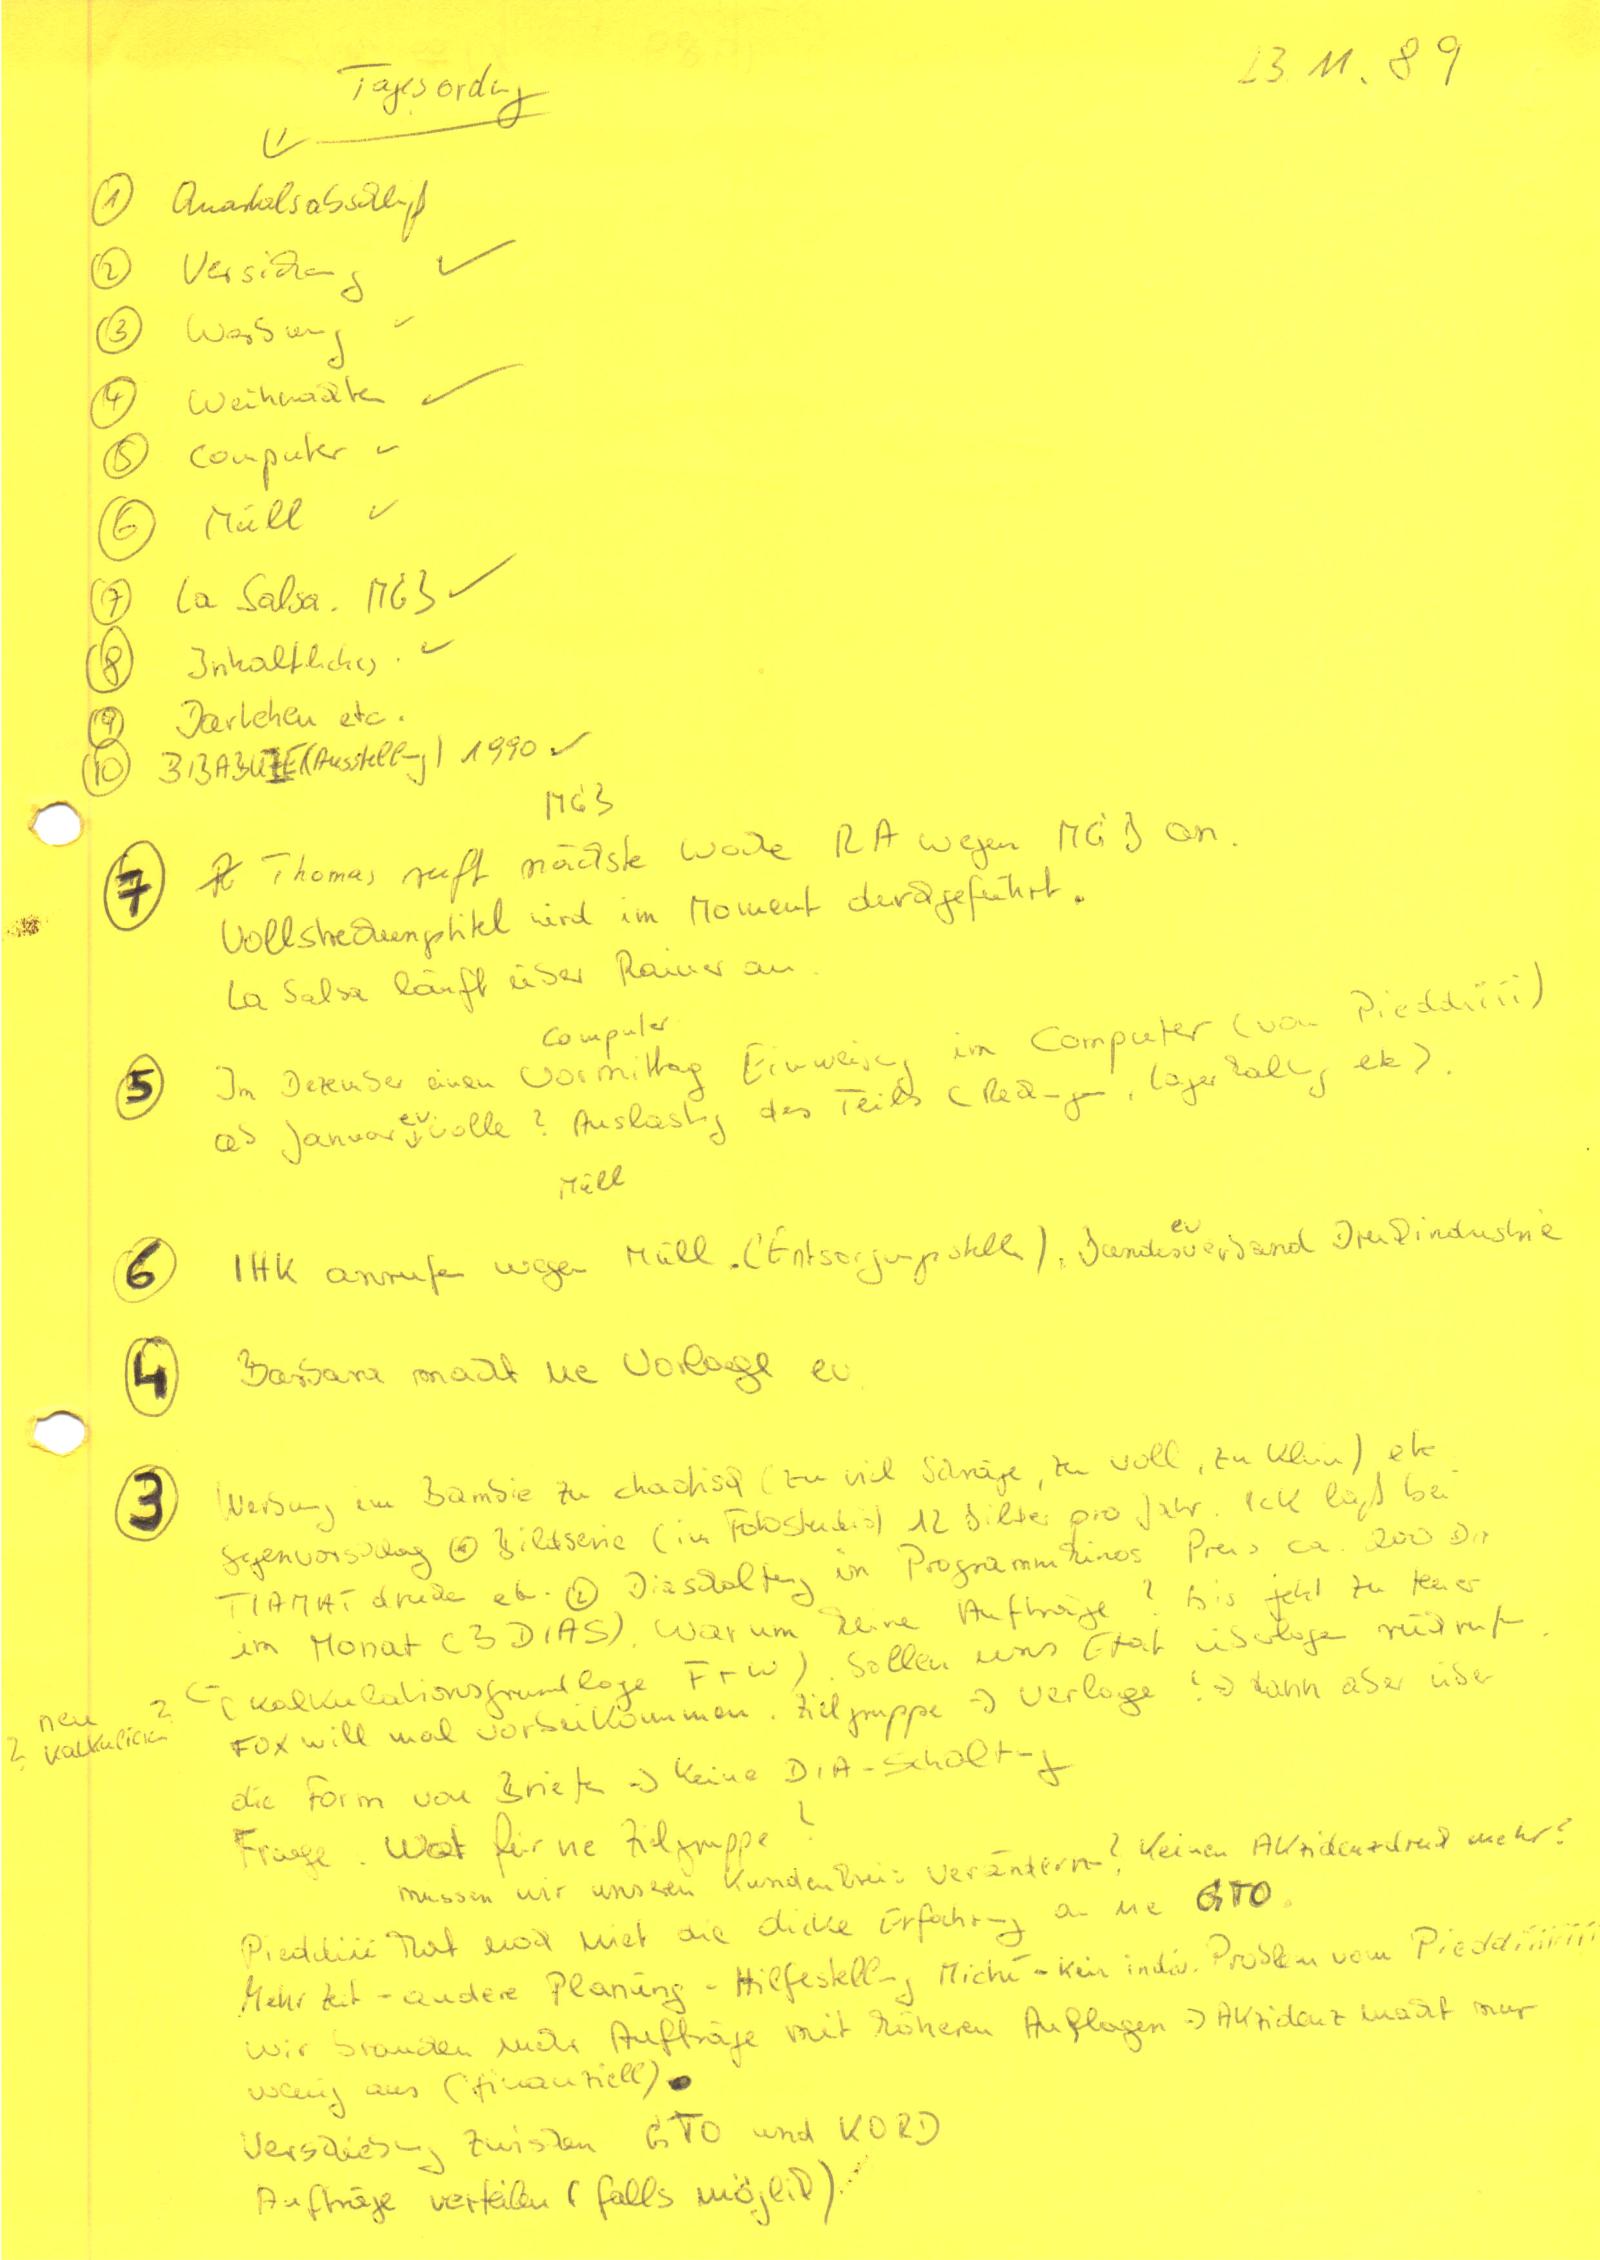 23.11.89
Tagesordng
① Quartalsabschluß
② Versicherung ✓
③ Werbung ✓
④ Weihnachten ✓
⑤ Computer ✓
⑥ Müll ✓
⑦ La Salsa. MGB ✓
⑧ Inhaltliches. ✓
⑨ Darlehen etc.
⑩ (Ausstellung) 1990 ✓
MGB
⑦ Thomas ruft nächste Woche RA wegen MGB an.
Vollstreckungstitel wird im Moment durchgeführt.
La Salsa läuft über Rainer an.
Computer
⑤ Im Dezember einen Vormittag Einweisung im Computer (von Pieddiiii)
ab Januar ev. volle? Auslastg des Teils (Rechnungen, Lagerhaltung etc).
Müll
⑥ IHK anrufen wegen Müll. (Entsorgungsstelle), ev Landesverband Druckindustrie
④ Barbara macht ne Vorlage ev.
③ Werbung im Bambie zu chaotisch (zu viel Schräge, zu voll, zu klein) etc.
gegenvorschlag ① Bildserie (im Fotostudio) 12 Bilder pro Jahr. ICK laß bei
TIAMAT drucken etc. ② Diaschaltung in Programmkinos Preis ca. 200 DM
im Monat (3 DIAS). Warum keine Aufträge? bis jetzt zu teuer
(Kalkulationsgrundlage F+W). Sollen uns Etat überlegen rückrufen.
? neu kalkulieren ?
FOX will mal vorbeikommen. Zielgruppe → Verlage! → dann aber über
die Form von Briefen → Keine DIA-Schaltung
Frage. Wat für ne Zielgruppe?
müssen wir unseren Kundenkreis verändern? Keinen Akzidenzdruck mehr?
Pieddiii hat noch niet die dicke Erfahrung an ne GTO.
Mehr Zeit - andere Planung - Hilfestellung Michi - Kein indiv. Problem vom Pieddiiiiiiiii
wir brauchen mehr Aufträge mit höheren Auflagen → Akzidenz macht nur
wenig aus (finanziell).
Verschiebung zwischen GTO und KORD
Aufträge verteilen (falls möglich)